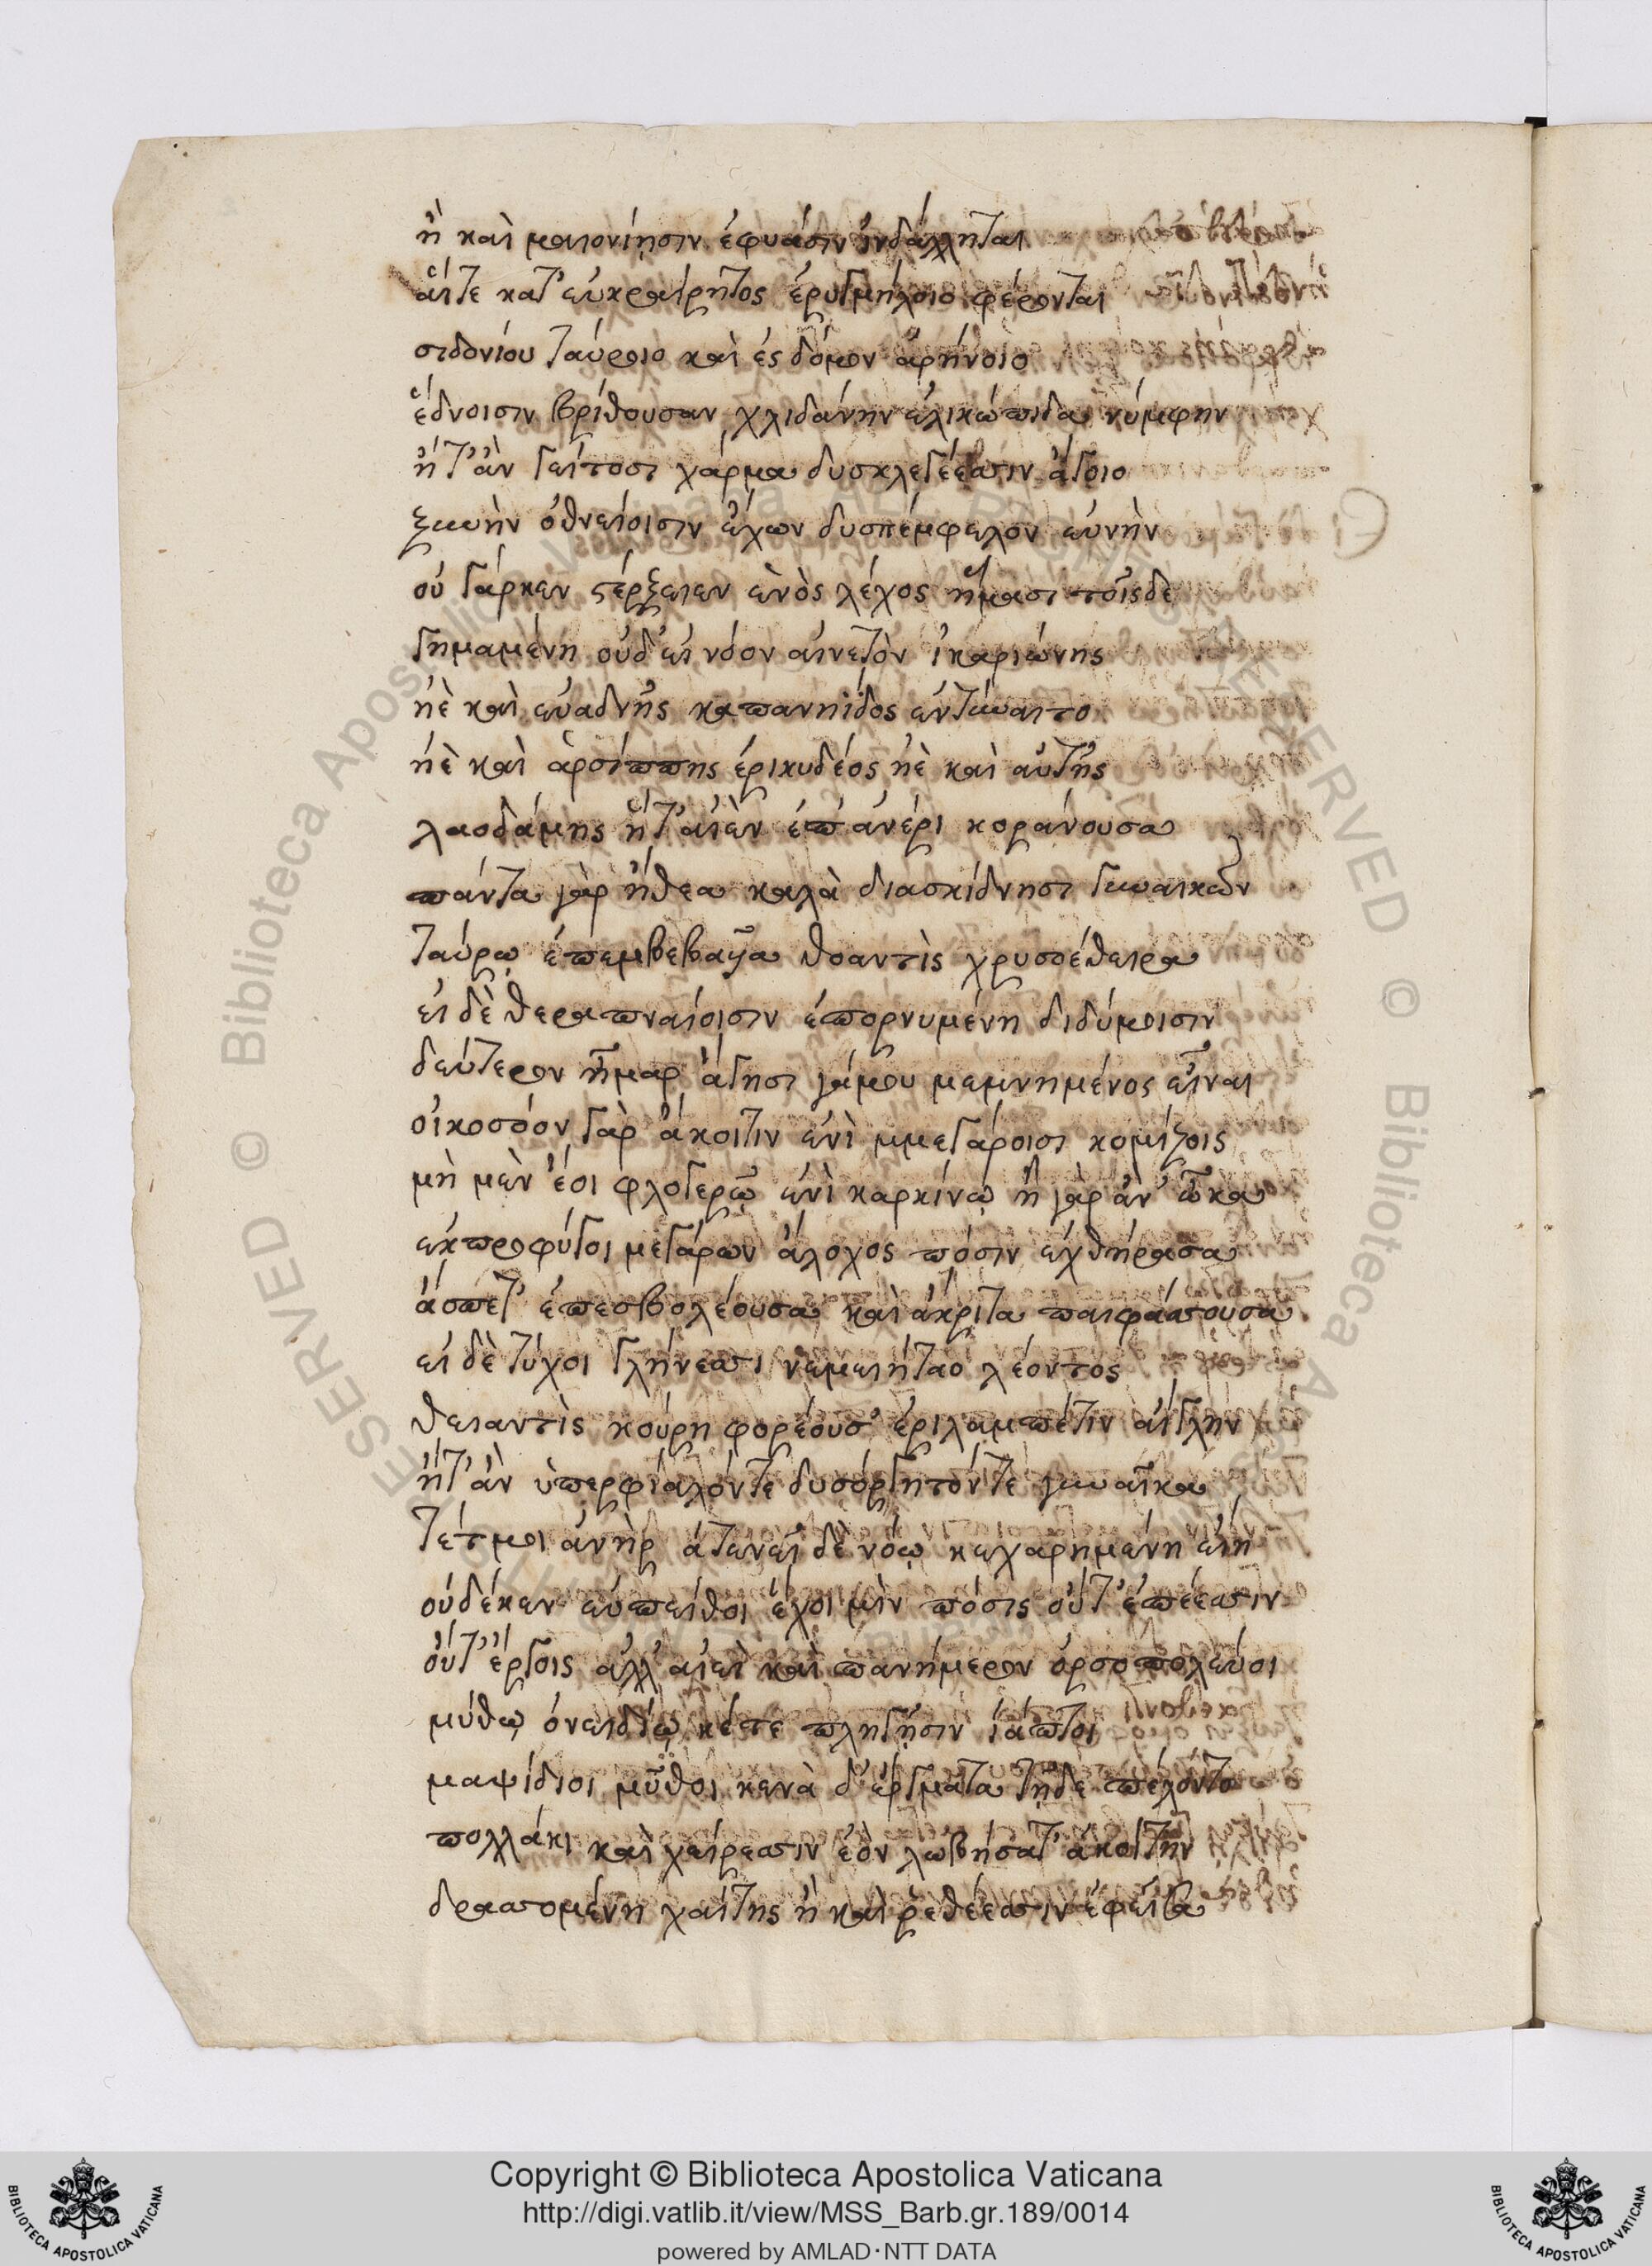 ἢ καὶ μαιονίησιν ἐφυάσιν ἰνδάλληται
αἵτε κατ' εὐκραίρητος ἐρυγμήλοιο φέρονται
σιδονίου ταύροιο καὶ ἐς δόμον ἀρήνοιο
ἕδνοισιν βρίθουσαν χλιδάνην ἑλικώπιδα νύμφην
ἥτ' ἂν γείτοσι χάρμα δυσκλεγέεσσιν ἄγοιο
ξυνὴν ὀθνείοισιν ἔχων δυσπέμφελον εὐνὴν
οὐ γάρκεν στέρξειεν ἑνὸς λέχος ἤμασι τοῖσδε
γημαμένη οὐδ' εἰ νόον αἰνετὸν ἰκαριώνης
ἠὲ καὶ εὐάδνης καπανηίδος ἐντύναιτο
ἠὲ καὶ ἀρσίππης ἐρικυδέος ἠὲ καὶ αὐτῆς
λαοδάμης ἥτ' αἰὲν ἐπ' ἀνέρι κοράνουσα
πάντα γὰρ ἤθεα καλὰ διασκίδνησι γυναικῶν
ταύρῳ ἐπεμβεβαῦα θοαντὶς χρυσοέθειρα
εἰ δὲ θεραπναίοισιν ἐπορνυμένη διδύμοισιν
δεύτερον ἦμαρ ἄγησι γάμου μεμνημένος εἶναι
οἰκοσόον γὰρ ἄκοιτιν ἐνὶ μμεγάροισι κομίζοις
μὴ μὲν ἔοι φλογερῷ ἐνὶ καρκίνῳ ἢ γὰρ ἂν ὦκα
ἐκπροφύγοι μεγάρων ἄλοχος πόσιν ἐχθήρασα
ἄσπετ' ἐπεσβολέουσα καὶ ἄκριτα παιφάσσουσα
εἰ δὲ τύχοι γλήνεσσι νεμειήταο λέοντος
θειαντὶς κούρη φορέουσ' ἐριλαμπέτιν αἴγλην
ἥτ' ἂν ὑπερφίαλόντε δυσόργητόντε γυναῖκα
τέτμοι ἀνὴρ ἀτενεῖ δὲ νόῳ κεχαρημένη εἴη
οὐδέκεν εὐπείθοι ἔχοι μὶν πόσις οὔτ' ἐπέεσσιν
οὔτ' ἔργοις ἀλλ' αἰεὶ καὶ πανήμερον ὀρσοπολεύοι
μύθῳ ὀνειδίῳ κέτε πληγῇσιν ἰάπτοι
μαψίδιοι μῦθοι κενὰ δ' ἔργματα τῇδε πέλοντο
πολλάκι καὶ χείρεσσιν ἑὸν λωβήσατ' ἀκοίτην
δρασσομένη χαίτης ἢ καὶ ῥεθέεσσιν ἐφεῖσα
Copyright © Biblioteca Apostolica Vaticana
http://digi.vatlib.it/view/MSS_Barb.gr.189/0014
powered by AMLAD·NTT DATA